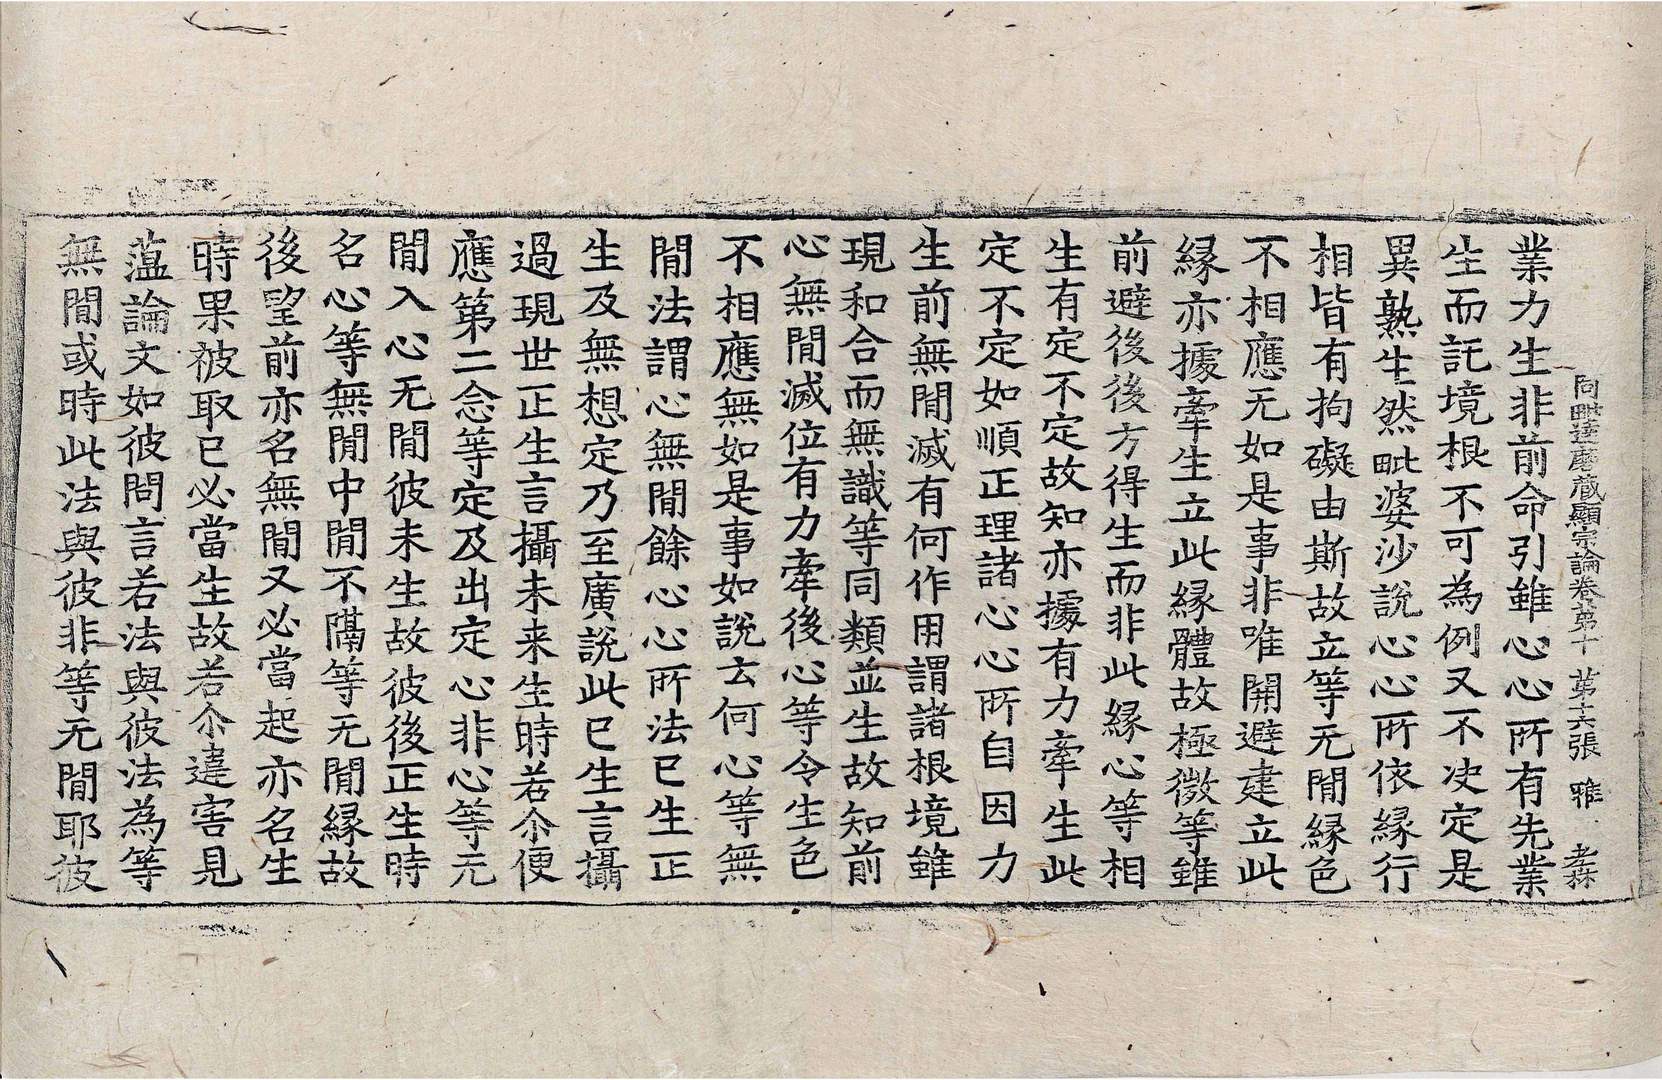 阿毗達磨藏顯宗論卷第十 第十六張 雅 孝
業力生非前命引雖心心所有先業
生而託境根不可為例又不决定是
異熟生然毗婆沙說心心所依緣行
相皆有拘礙由斯故立等无間緣色
不相應无如是事非唯開避建立此
緣亦據牽生立此緣體故極微等雖
前避後後方得生而非此緣心等相
生有定不定故知亦據有力牽生此
定不定如順正理諸心心所自因力
生前無間滅有何作用謂諸根境雖
現和合而無識等同類並生故知前
心無間滅位有力牽後心等令生色
不相應無如是事如說云何心等無
間法謂心無間餘心心所法已生正
生及無想定乃至廣說此已生言攝
過現世正生言攝未来生時若尒便
應第二念等定及出定心非心等无
間入心无間彼未生故彼後正生時
名心等無間中間不隔等无間緣故
後望前亦名無間又必當起亦名生
時果被取已必當生故若尒違害見
蕰論文如彼問言若法與彼法為等
無間或時此法與彼非等无間耶彼